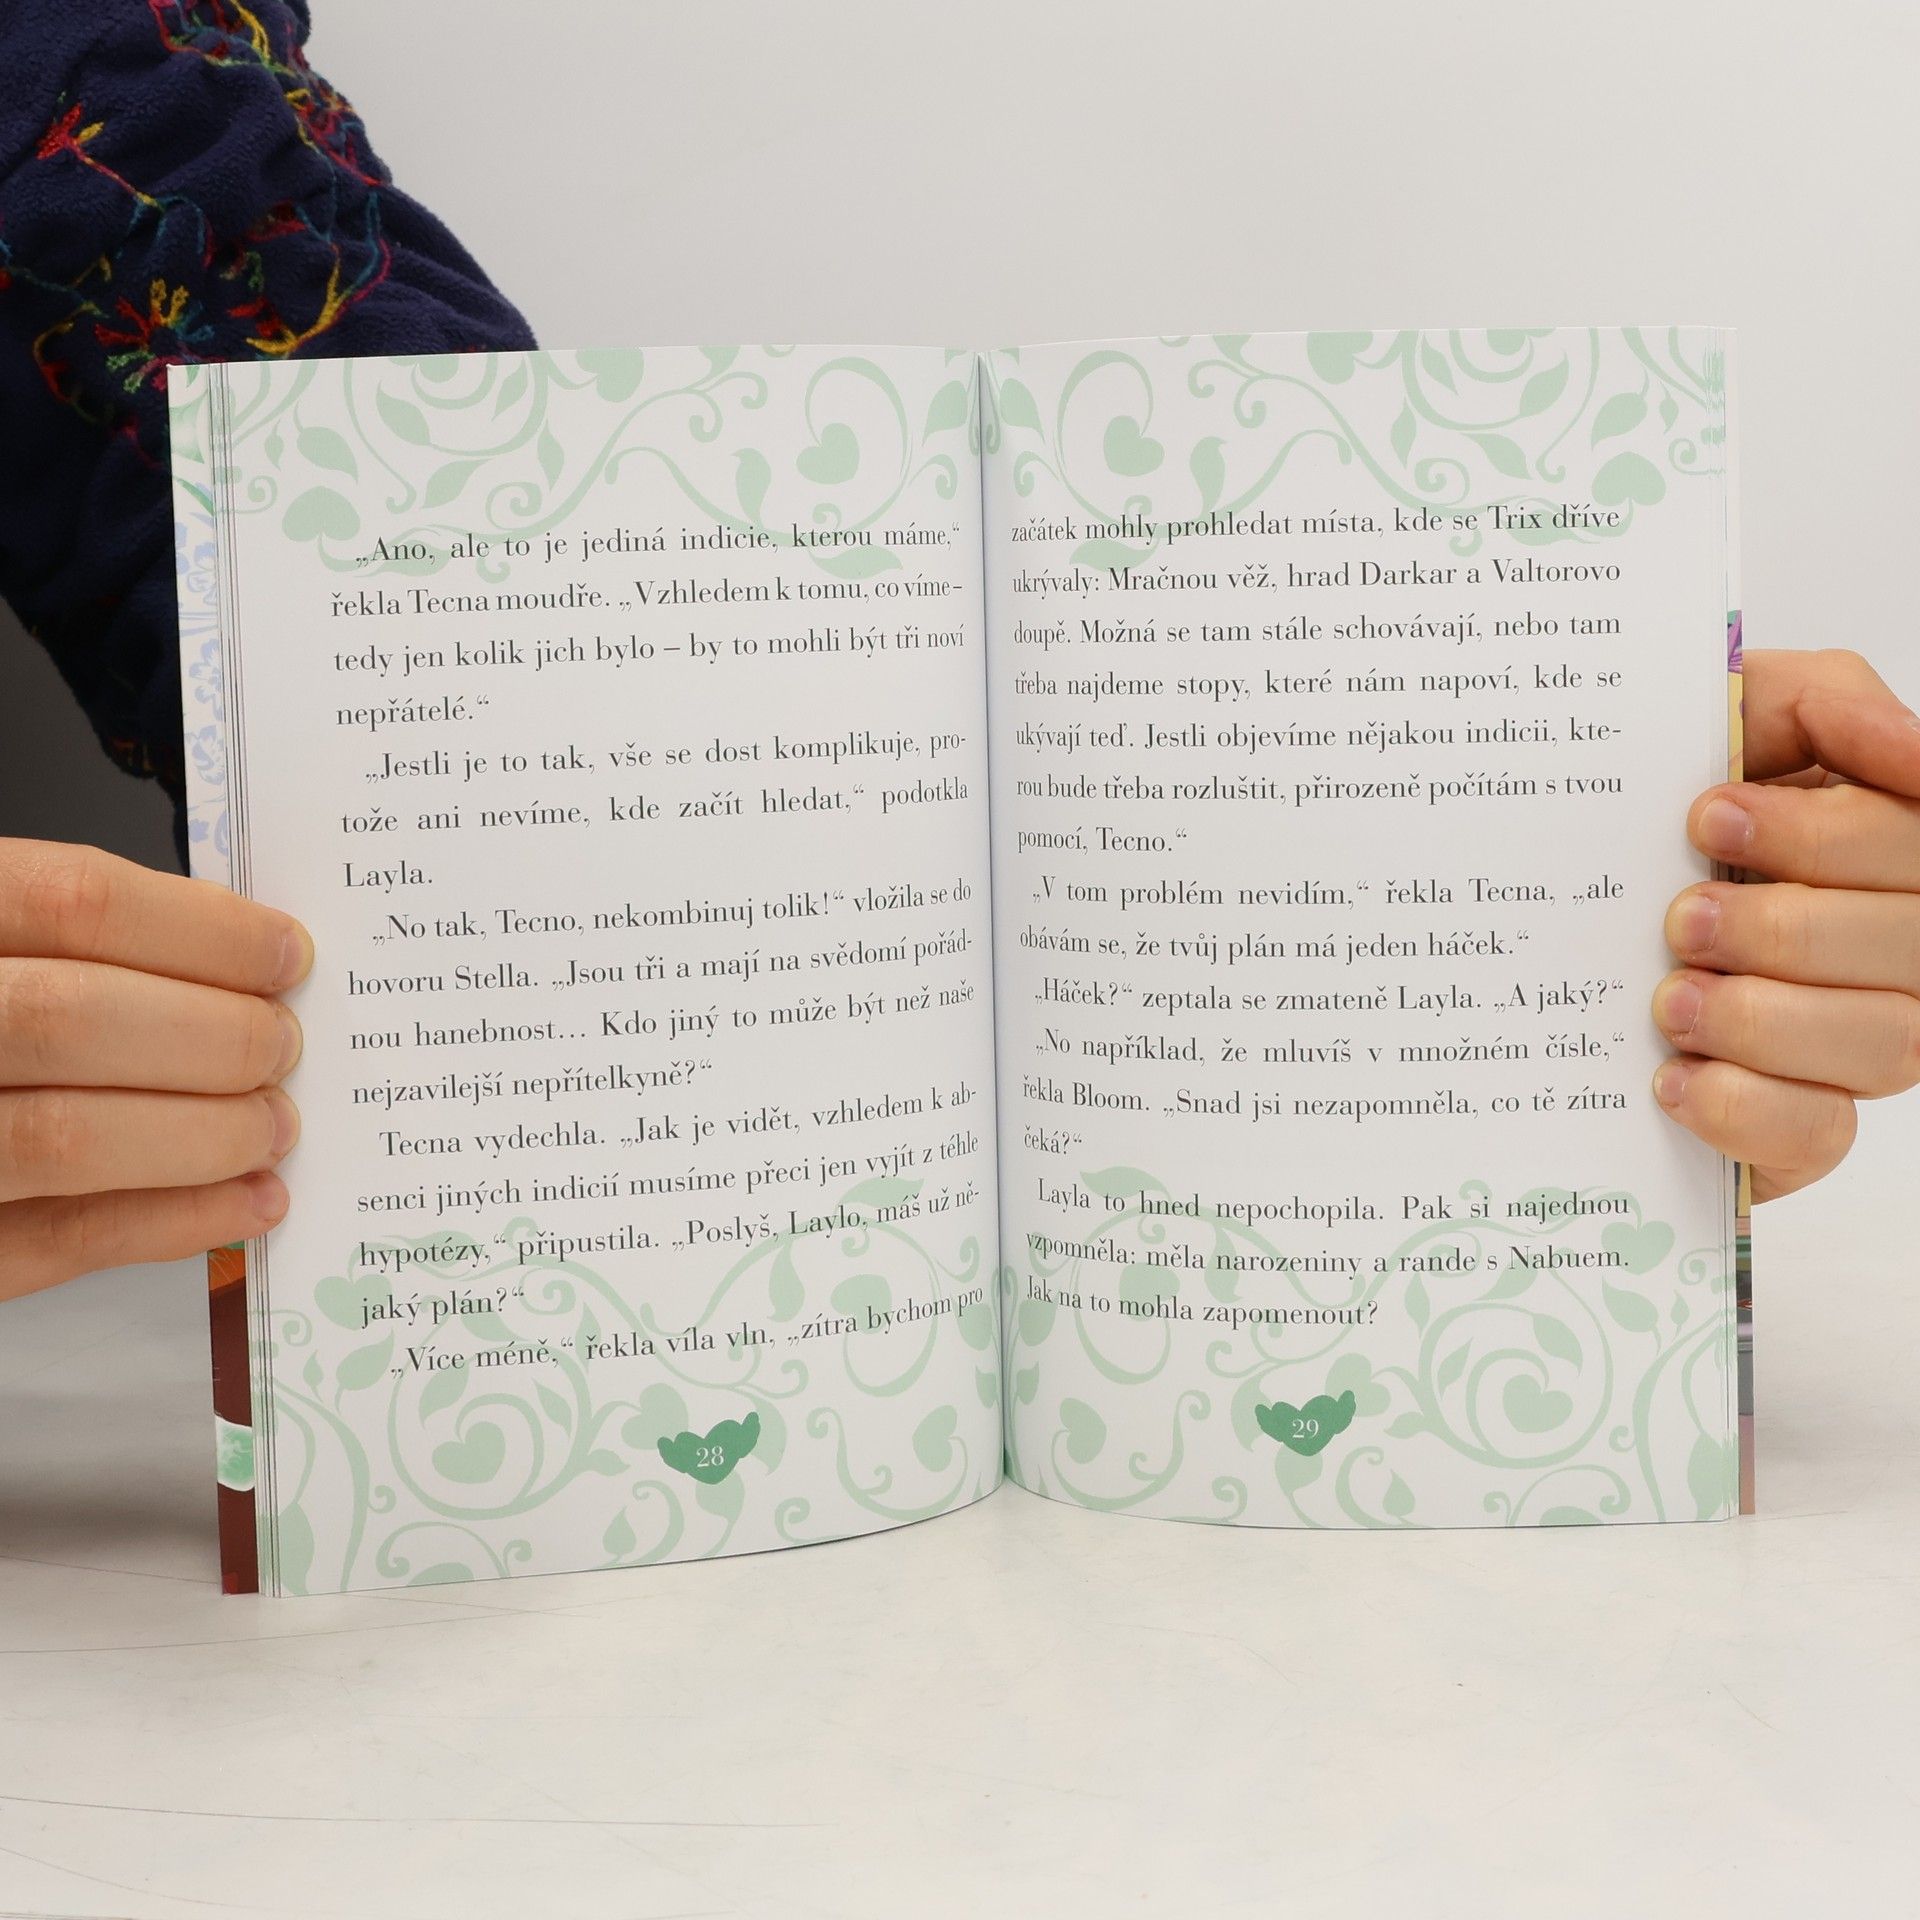 „Ano, ale to je jediná indicie, kterou máme,“
řekla Tecna moudře. „Vzhledem k tomu, co víme–
tedy jen kolik jich bylo – by to mohli být tři noví
nepřátelé.“
„Jestli je to tak, vše se dost komplikuje, pro-
tože ani nevíme, kde začít hledat,“ podotkla
Layla.
„No tak, Tecno, nekombinuj tolik!“ vložila se do
hovoru Stella. „Jsou tři a mají na svědomí pořád-
nou hanebnost… Kdo jiný to může být než naše
nejzavilejší nepřítelkyně?“
Tecna vydechla. „Jak je vidět, vzhledem k ab-
senci jiných indicií musíme přeci jen vyjít z téhle
hypotézy,“ připustila. „Poslyš, Laylo, máš už ně-
jaký plán?“
„Více méně,“ řekla víla vln, „zítra bychom pro
28
začátek mohly prohledat místa, kde se Trix dříve
ukrývaly: Mračnou věž, hrad Darkar a Valtorovo
doupě. Možná se tam stále schovávají, nebo tam
třeba najdeme stopy, které nám napoví, kde se
ukývají teď. Jestli objevíme nějakou indicii, kte-
rou bude třeba rozluštit, přirozeně počítám s tvou
pomocí, Tecno.“
„V tom problém nevidím,“ řekla Tecna, „ale
obávám se, že tvůj plán má jeden háček.“
„Háček?“ zeptala se zmateně Layla. „A jaký?“
„No například, že mluvíš v množném čísle,“
řekla Bloom. „Snad jsi nezapomněla, co tě zítra
čeká?“
Layla to hned nepochopila. Pak si najednou
vzpomněla: měla narozeniny a rande s Nabuem.
Jak na to mohla zapomenout?
29